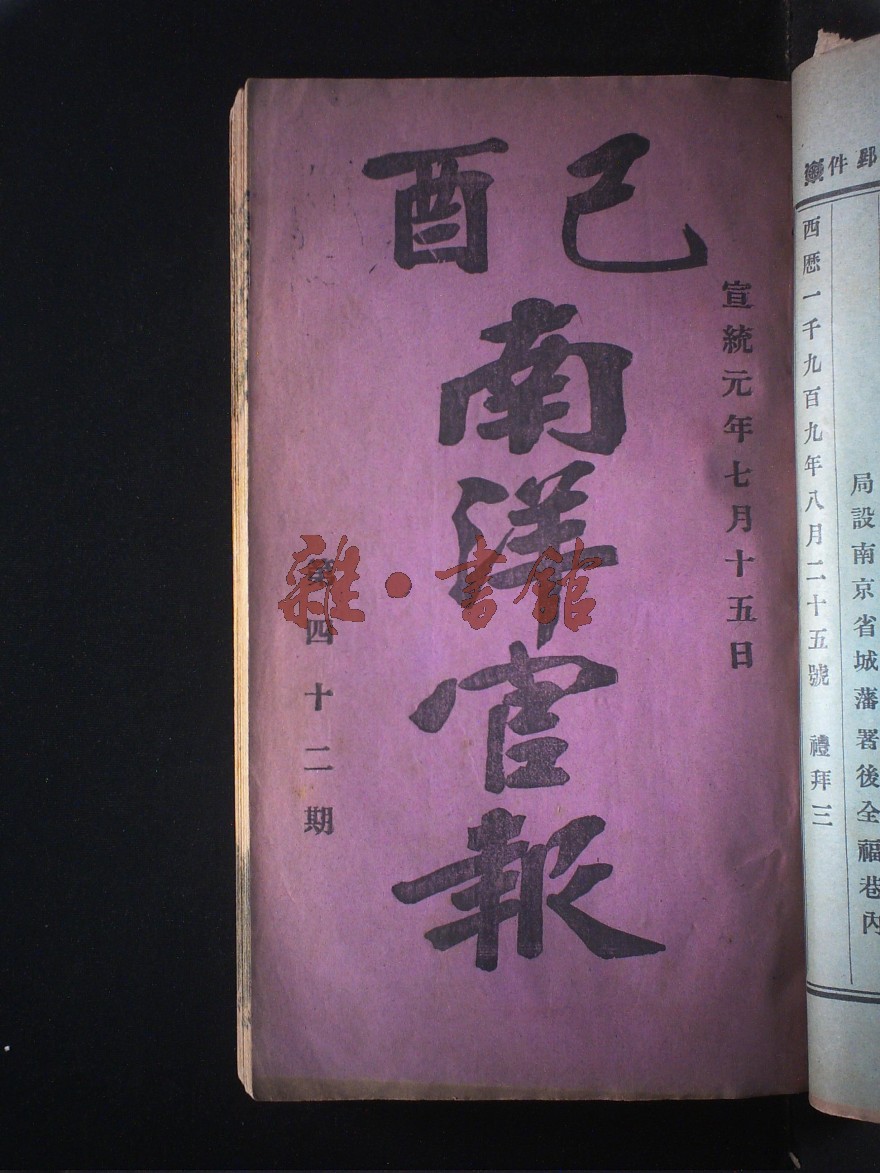 郵件
西歷一千九百九年八月二十五號 禮拜三
局設南京省城藩署後全福巷內
己酉
宣統元年七月十五日
南洋官報
第四十二期
雜·書館